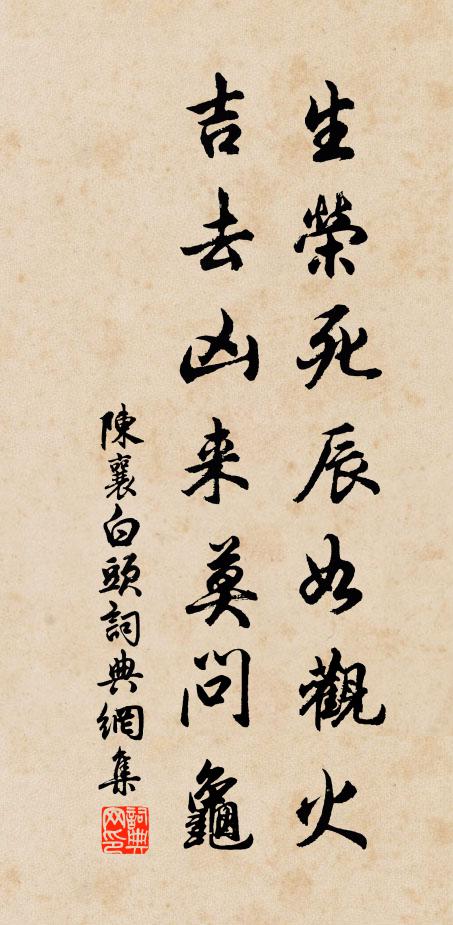 生榮死辰如觀火
吉去凶来莫問龜
陳襄白頭詞典網集
詞典網印